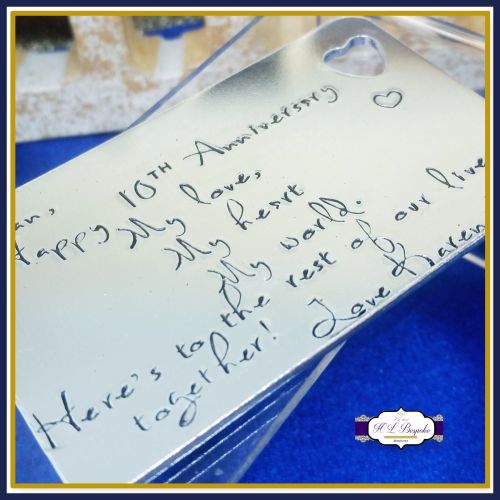 an,
Happy 10TH Anniversary
My love,
My heart
My world.
Here's to the rest of our live
together! Love Karen
H L Bespoke